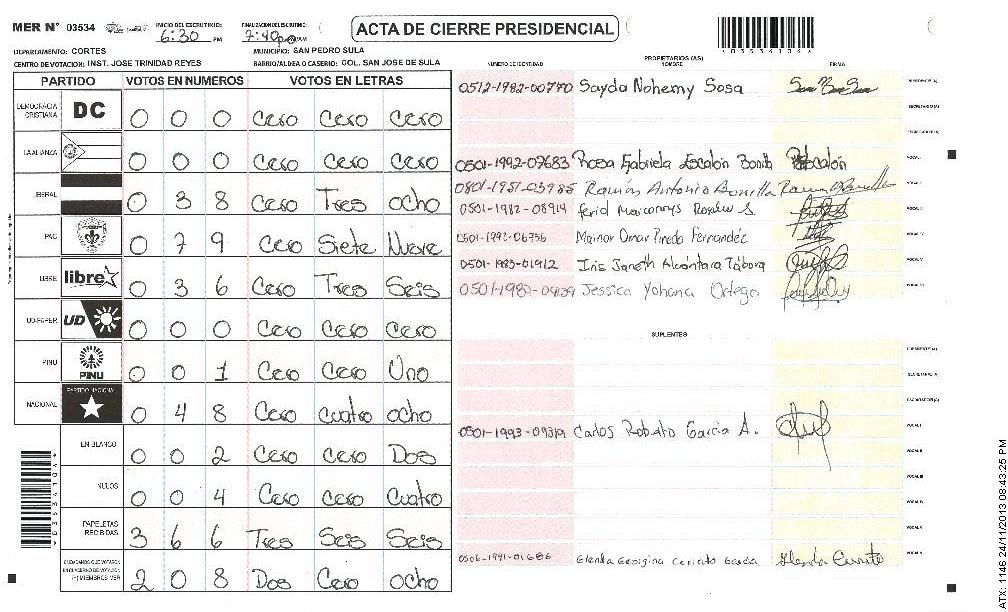 MER N° 03534 INICIO DEL ESCRUTINIO: 6:30 PM FINALIZACION DEL ESCRUTINIO: 7:40 ACTA DE CIERRE PRESIDENCIAL
DEPARTAMENTO: CORTES MUNICIPIO: SAN PEDRO SULA
CENTRO DE VOTACION: INST. JOSE TRINIDAD REYES BARRIO/ALDEA O CASERIO: COL. SAN JOSE DE SULA
PARTIDO VOTOS EN NUMEROS VOTOS EN LETRAS
DEMOCRACIA CRISTIANA DC 0 0 0 Cero Cero Cero
LA ALIANZA 0 0 0 Cero Cero Cero
LIBERAL 0 3 8 Cero Tres Ocho
PAC 0 7 9 Cero Siete Nueve
LIBRE libre 0 3 6 Cero Tres Seis
UD-FAPER UD 0 0 0 Cero Cero Cero
PINU PINU 0 0 1 Cero Cero Uno
NACIONAL PARTIDO NACIONAL 0 4 8 Cero Cuatro Ocho
EN BLANCO 0 0 2 Cero Cero Dos
NULOS 0 0 4 Cero Cero Cuatro
PAPELETAS RECIBIDAS 3 6 6 Tres Seis Seis
CIUDADANOS QUE VOTARON EN CUADERNO DE VOTACION (+) MIEMBROS MER 2 0 8 Dos Cero Ocho
PROPIETARIOS (AS)
NUMERO DE IDENTIDAD NOMBRE FIRMA
0512-1982-00770 Sayda Nohemy Sosa
0501-1992-07683 Rosa Gabriela Escalón Bonilla
0801-1951-03985 Ramón Antonio Bonilla
0501-1982-08914 ferid
0501-1992-06756 Mainor Omar Pineda Fernandéz
0501-1983-01912 Iris Janeth Alcántara Tábora
0501-1982-09139 Jessica Yohana Ortega
SUPLENTES
0501-1993-09319 Carlos Roberto Garcia A.
0506-1991-01686 Glenda Georgina Cerrato Garcia
ATX: 1146 24/11/2013 08:43:25 PM